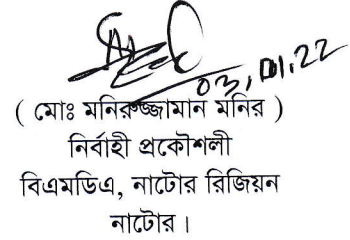 03,01,22
( মোঃ মনিরুজ্জামান মনির )
নির্বাহী প্রকৌশলী
বিএমডিএ, নাটোর রিজিয়ন
নাটোর।